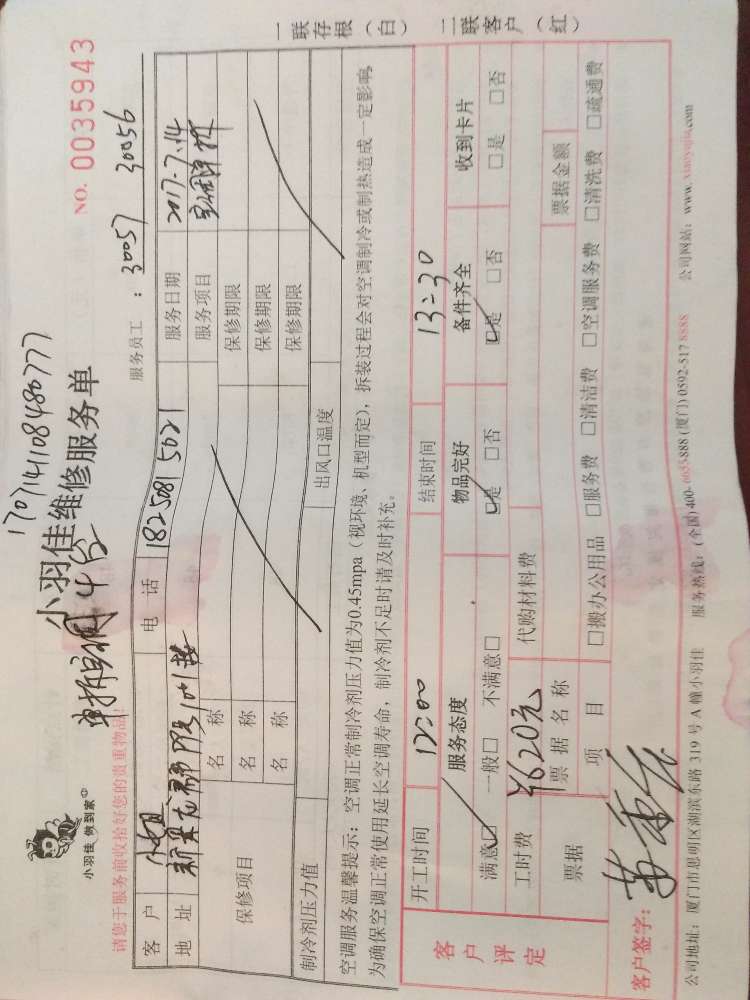 17071410848077​7
小羽佳维修服务单
NO. 0035943
小羽佳 做到家
请您于服务前收拾好您的贵重物品!
单拆空调4台
服务员工：30057 30056
客户 电话 18250815021 服务日期 2017.7.14
地址 1001 服务项目
保修项目 名称 保修期限
名称 保修期限
名称 保修期限
制冷剂压力值 出风口温度
空调服务温馨提示：空调正常制冷剂压力值为0.45mpa（视环境、机型而定），拆装过程会对空调制冷或制热造成一定影响，
为确保空调正常使用延长空调寿命，制冷剂不足时请及时补充。
客户评定
开工时间 12:00 结束时间 13:30
服务态度 物品完好 备件齐全 收到卡片
满意☑ 一般□ 不满意□ ☑是 □否 ☑是 □否 □是 □否
工时费 ¥620元 代购材料费
票据 票据名称 票据金额
项目 □搬办公用品 □服务费 □清洁费 □空调服务费 □清洗费 □疏通费
客户签字：
公司地址：厦门市思明区湖滨东路 319 号 A 幢小羽佳 服务热线：(全国) 400-6055-888 (厦门) 0592-517 8888 公司网站：www.xiaoyujia.com
一联存根（白） 二联客户（红）